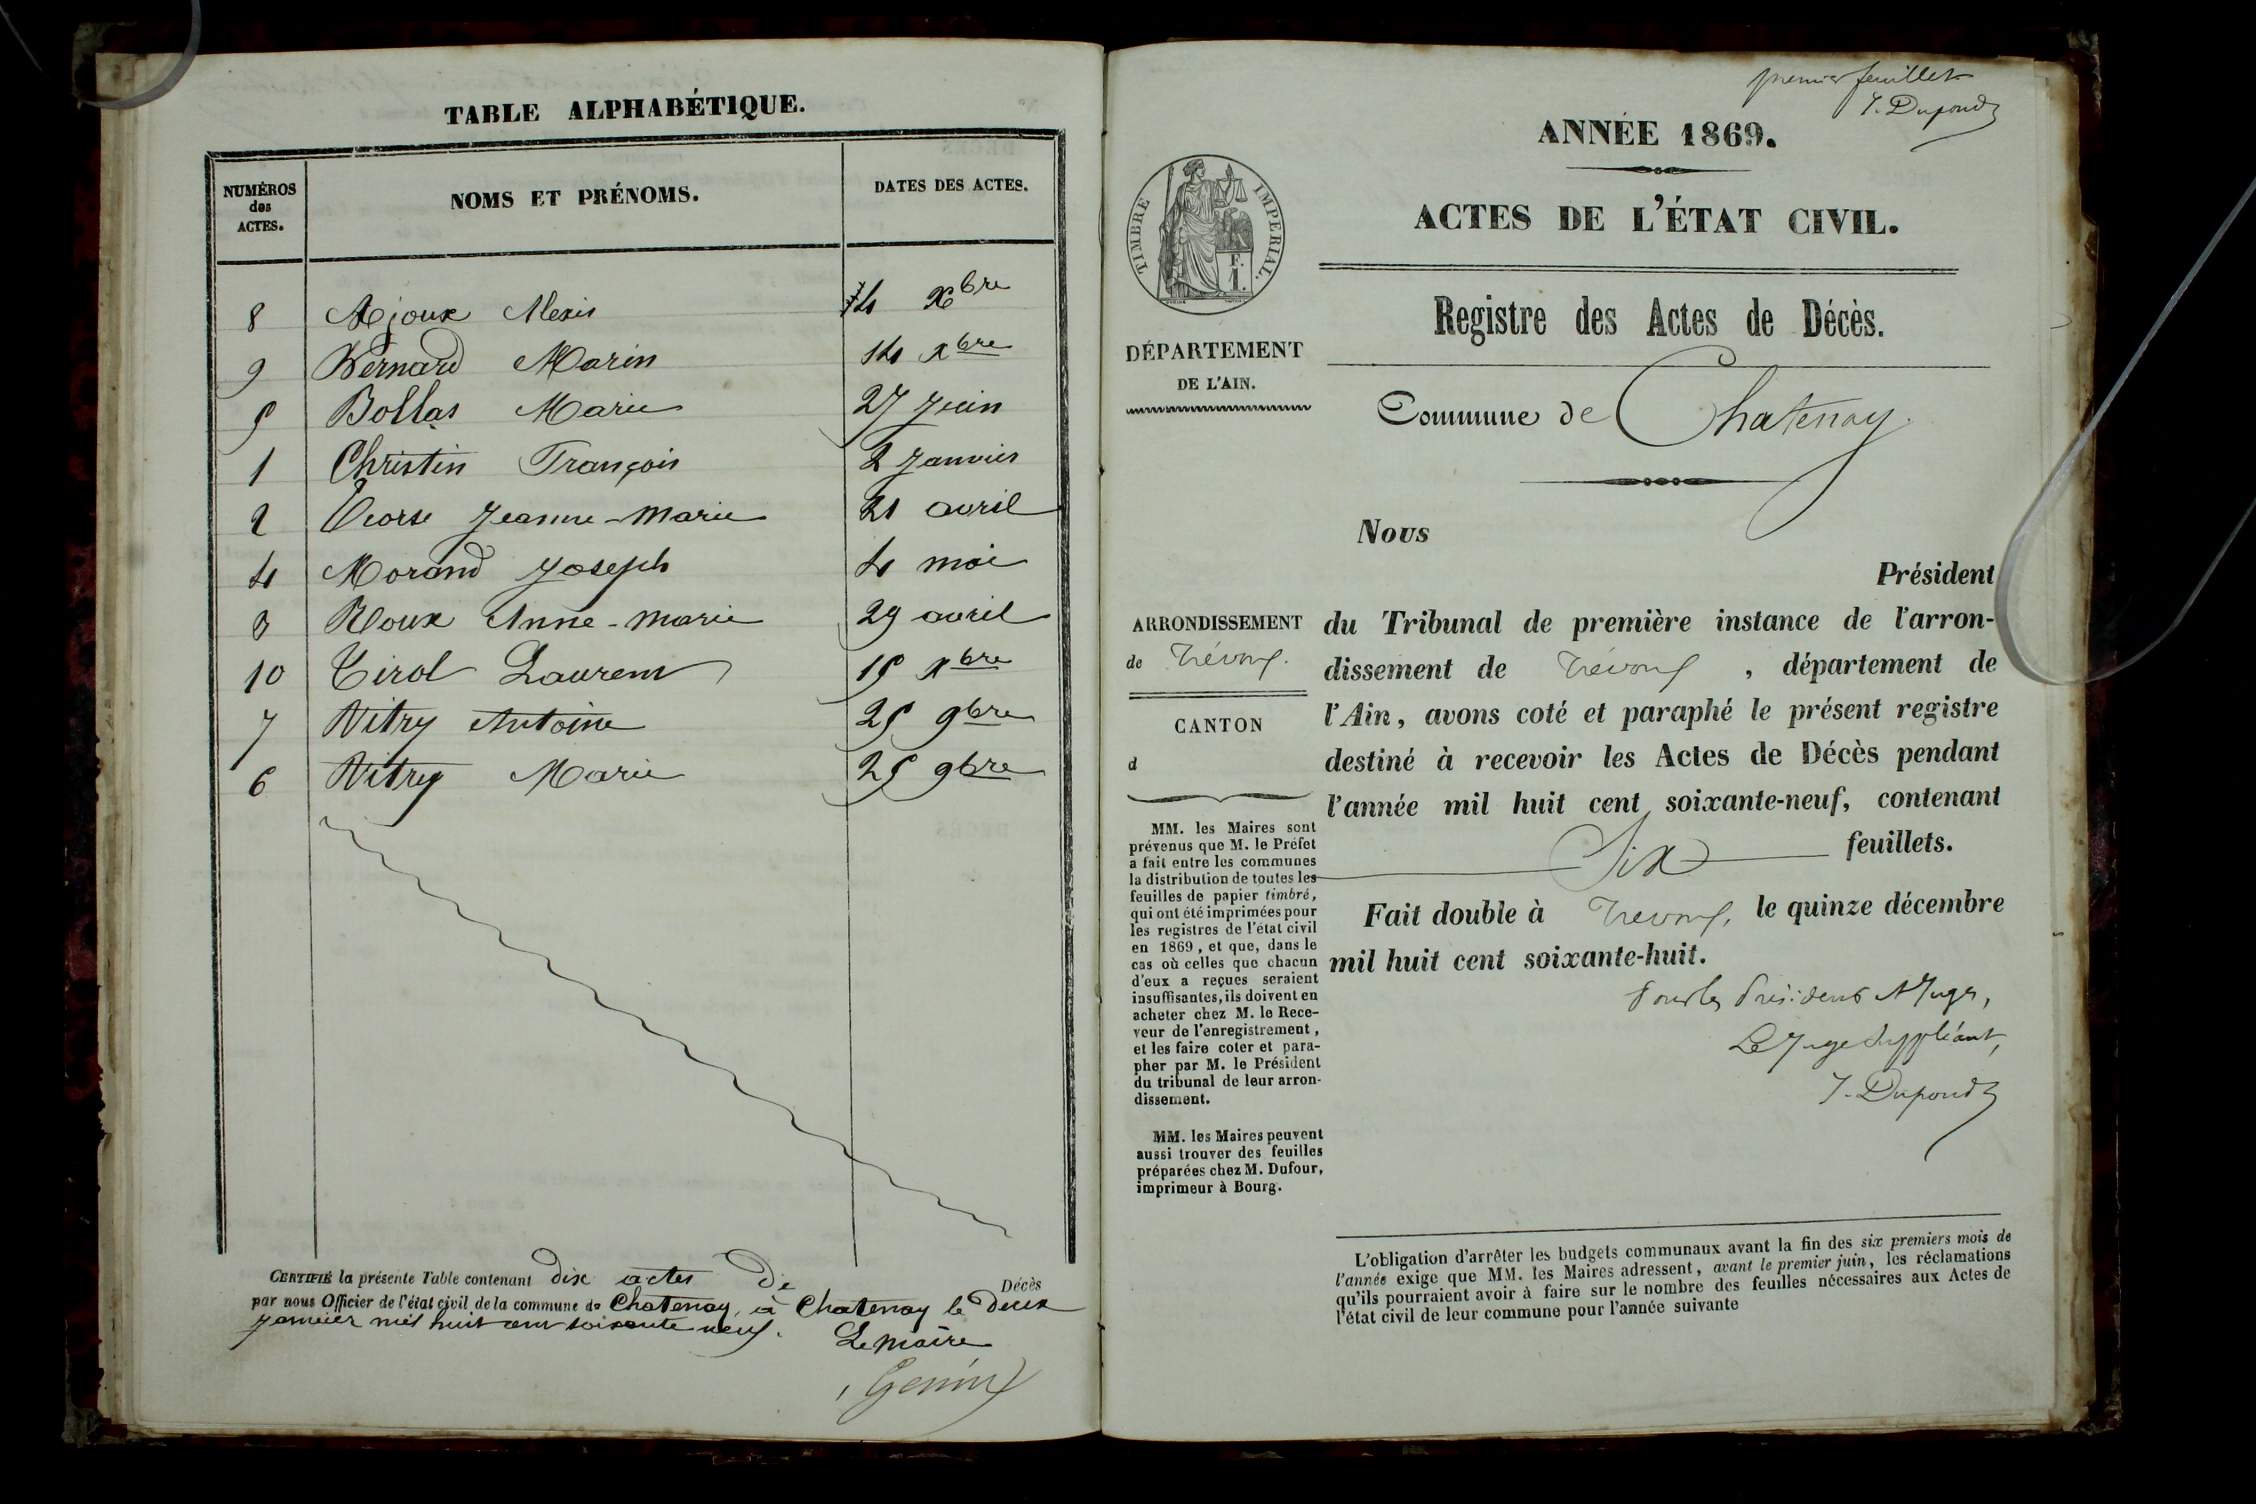 TABLE ALPHABÉTIQUE.
NUMÉROS
des
ACTES.
NOMS ET PRÉNOMS.
DATES DES ACTES.
8 Ajoux Alexis 4 Xbre
9 Bernard Marin 14 Xbre
5 Bollas Marie 27 Juin
1 Christin François 2 Janvier
2 Jeanne-Marie 21 avril
4 Morand Joseph 4 mai
3 Roux Anne-Marie 29 avril
10 Tirol Laurent 15 Xbre
7 Vitry Antoine 25 9bre
6 Vitry Marie 25 9bre
CERTIFIÉ la présente Table contenant dix actes de Décès
par nous Officier de l'état civil de la commune de Chatenay, à Chatenay le deux
janvier mil huit cent soixante neuf.
Le Maire
Genin
premier feuillet
J. Dupond
ANNÉE 1869.
ACTES DE L'ÉTAT CIVIL.
TIMBRE IMPERIAL.
F.
1.
Registre des Actes de Décès.
DÉPARTEMENT
DE L'AIN.
Commune de Chatenay.
Nous
Président
du Tribunal de première instance de l'arron-
dissement de Trévoux, département de
l'Ain, avons coté et paraphé le présent registre
destiné à recevoir les Actes de Décès pendant
l'année mil huit cent soixante-neuf, contenant
Six feuillets.
Fait double à Trévoux, le quinze décembre
mil huit cent soixante-huit.
Le Juge Suppléant,
J. Dupond
ARRONDISSEMENT
de Trévoux.
CANTON
d
MM. les Maires sont
prévenus que M. le Préfet
a fait entre les communes
la distribution de toutes les
feuilles de papier timbré,
qui ont été imprimées pour
les registres de l'état civil
en 1869, et que, dans le
cas où celles que chacun
d'eux a reçues seraient
insuffisantes, ils doivent en
acheter chez M. le Rece-
veur de l'enregistrement,
et les faire coter et para-
pher par M. le Président
du tribunal de leur arron-
dissement.
MM. les Maires peuvent
aussi trouver des feuilles
préparées chez M. Dufour,
imprimeur à Bourg.
L'obligation d'arrêter les budgets communaux avant la fin des six premiers mois de
l'année exige que MM. les Maires adressent, avant le premier juin, les réclamations
qu'ils pourraient avoir à faire sur le nombre des feuilles nécessaires aux Actes de
l'état civil de leur commune pour l'année suivante